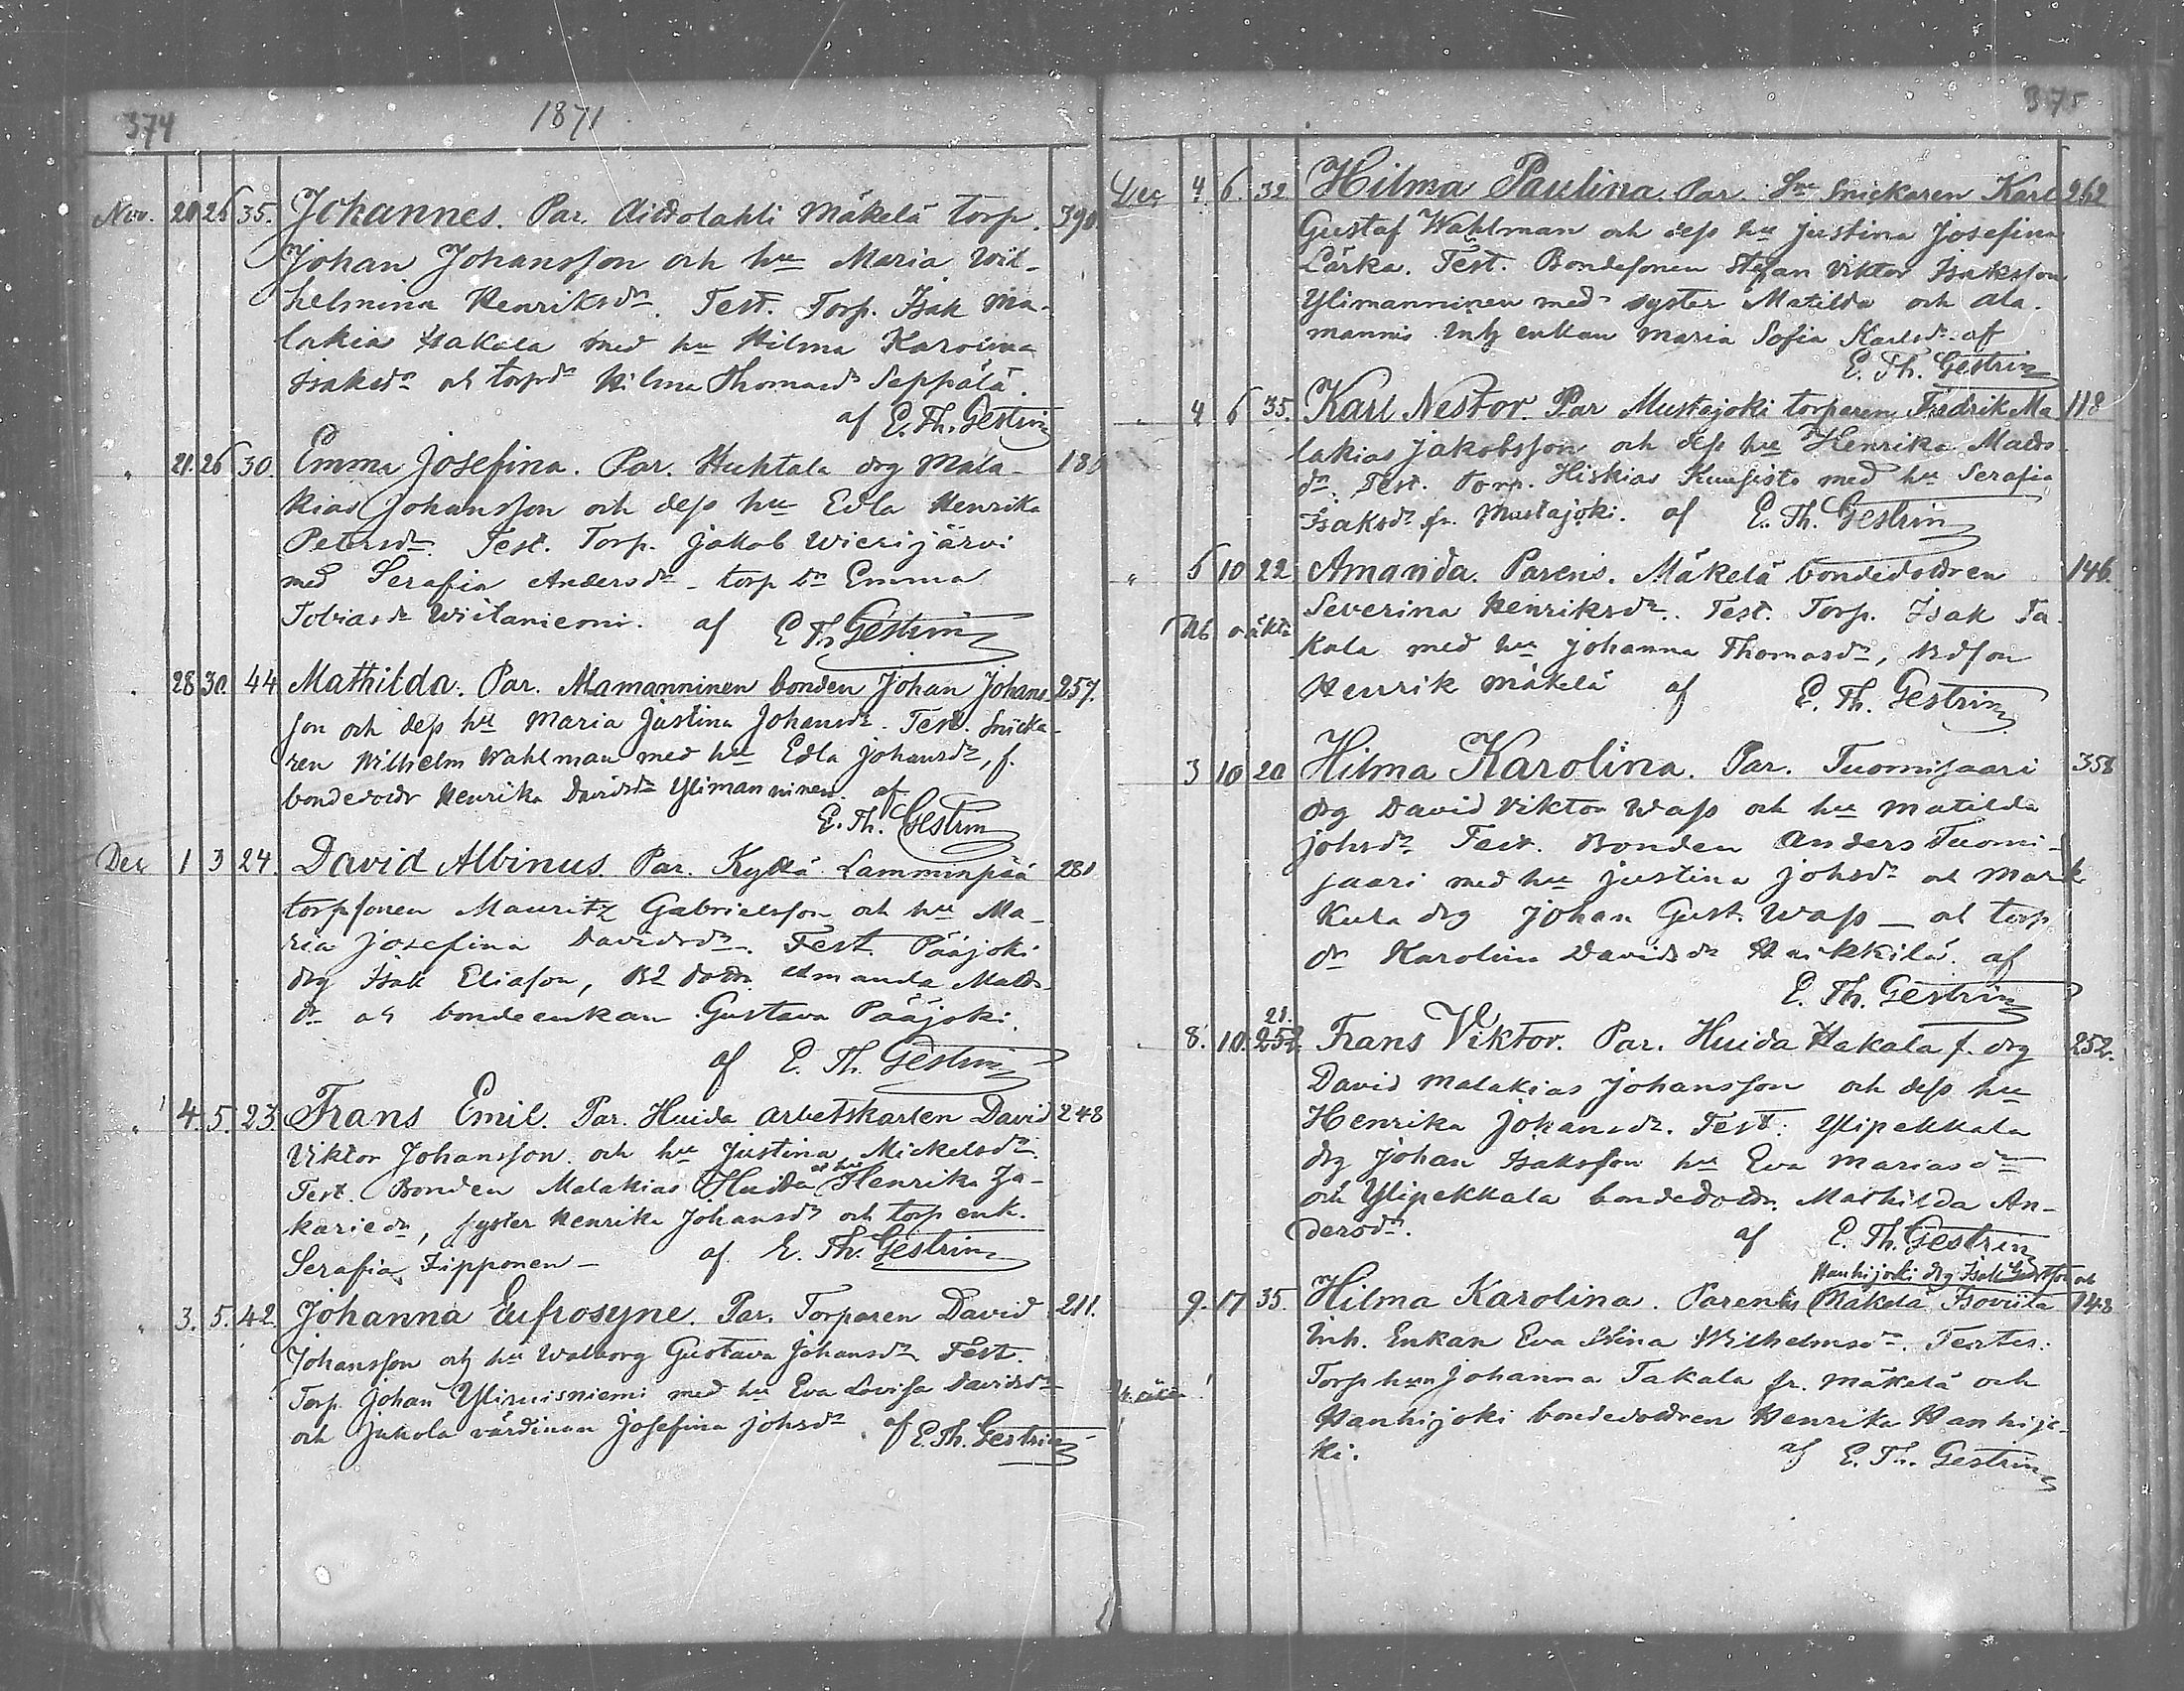 374
1871
Nov. 20 26 35. Johannes. Par. Aittolahti Mäkelä torp. 390.
Johan Johansson och hu Maria Wil-
helmina Henriksdr. Test. Torp. Isak Ma-
lakia Hakala med hu Hilma Karolina
Isaksdr och torpdr Hilma Thomasdr Seppälä.
af E. Th. Gestrin
" 21. 26 30. Emma Josefina. Par. Huhtala drg Mala- 180
kias Johansson och dess hu Edla Henrika
Petersdr. Test. Torp. Jakob Wierijärvi
med Serafia Andersdr - torp dr Emma
Tobiasdr Wiitaniemi. af E Th Gestrin
" 28 30. 44 Mathilda. Par. Alamanninen bonden Johan Johans- 257.
son och dess hu Maria Justina Johansdr. Test. Snicka-
ren Wilhelm Wahlman med hu Edla Johansdr, f.
bondedottr Henrika Davidsdr Ylimanninen. af
E. Th. Gestrin
Dec 1 3 24. David Albinus. Par. Kyttä Lamminpää 281
torpsonen Mauritz Gabrielsson och hu Ma-
ria Josefina Davidsdr. Test. Pääjoki
drg Isak Eliason, Amanda Matts-
dr och bondeenkan Gustava Pääjoki.
af E. Th. Gestrin
" 4. 5. 23. Frans Emil. Par. Huida arbetskarlen David 248
Viktor Johansson och hu Justina Mickelsdr.
Test. Bonden Malakias Huida o hu Henrika Za-
kariedr, syster Henrika Johansdr och torp enk.
Serafia Zipponen - af E. Th. Gestrin
" 3. 5. 42. Johanna Eufrosyne. Par. Torparen David 211.
Johansson och hu Walborg Gustava Johansdr Test.
Torp. Johan Yliruisniemi med hu Eva Lovisa Davidsdr
och Jukola värdinnan Josefina Johsdr af E. Th. Gestrin
375
Dec 4. 6. 32 Hilma Paulina. Par. Snickaren Karl 262
Gustaf Wahlman och dess hu Justina Josefina
Lärka. Test. Bondesonen Stefan Viktor Isaksson
Ylimanninen med syster Matilda och Ala-
mannis Inh enkan Maria Sofia Karlsdr. af
E. Th. Gestrin
" 4 6 35. Karl Nestor. Par Mustajoki torparen Fredrik Ma 118
lakias Jakobsson och dess hu Henrika Matts-
dr. Test. Torp. Hiskias Kuusisto med hu Serafia
Isaksdr fr. Mustajoki. af E. Th. Gestrin
" 5 10 22 Amanda. Parens. Mäkelä bondedottren 146.
Nb oäkta Severina Henriksdr. Test. Torp. Isak Ta-
kala med hu Johanna Thomasdr, Bdson
Henrik Mäkelä af E. Th. Gestrin
3 10 20 Hilma Karolina. Par. Tuomisaari 358
drg David Viktor Wass och hu Matilda
Johsdr Test. Bonden Anders Tuomi-
saari med hu Justina Johsdr och Mark
kula drg Johan Gust. Wass - och torp
dr Karolina Davidsdr Heikkilä. af
E. Th. Gestrin
21.
" 8. 10. 252 Frans Viktor. Par. Huida Hakala f. drg 252.
David Malakias Johansson och dess hu
Henrika Johansdr. Test. Ylipekkala
drg Johan Isaksson hu Eva Mariasdr
och Ylipekkala bondedottr. Mathilda An-
dersdr. af E. Th. Gestrin
Hanhijoki drg Isak Gustfson och
9. 17 35. Hilma Karolina. Parentes Mäkelä Isoviita 148
Inh. Enkan Eva Stina Wilhelmsdr. Testes.
Torp hun Johanna Takala fr. Mäkelä och
Hanhijoki bondedottren Henrika Hanhijo-
ki. af E. Th. Gestrin